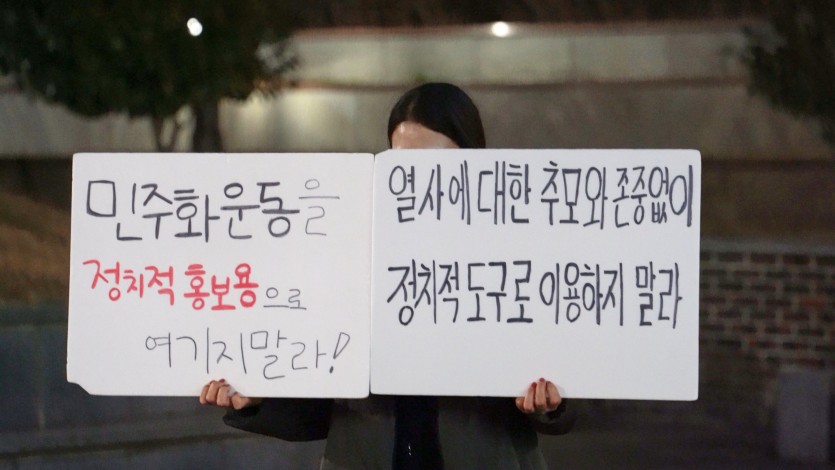 민주화운동을
정치적 홍보용으로
여기지말라!
열사에 대한 추모와 존중없이
정치적 도구로 이용하지 말라